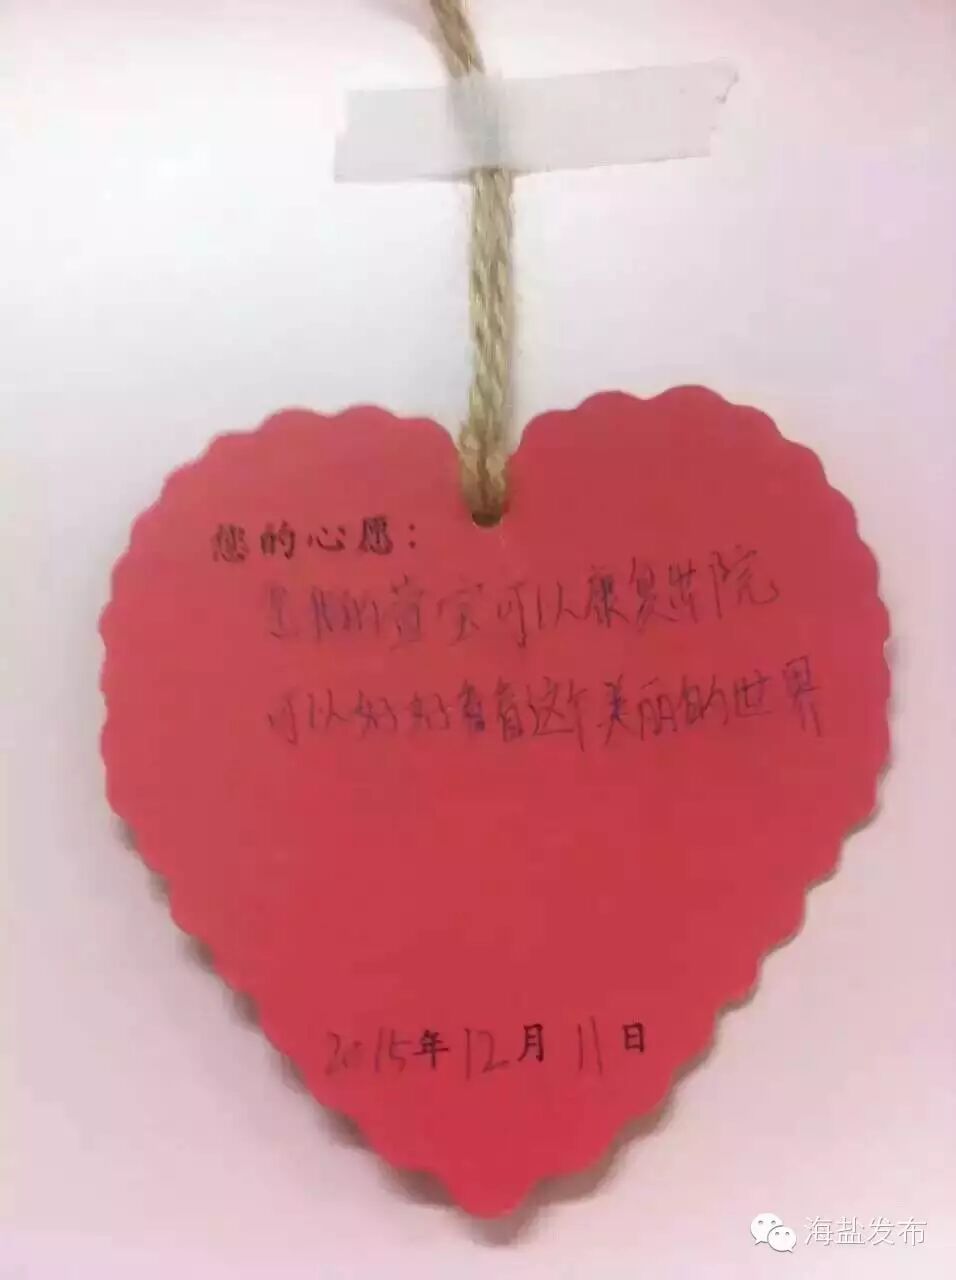 您的心愿：
是我的萱宝可以康复出院
可以好好看看这个美丽的世界
2015年12月11日
海盐发布